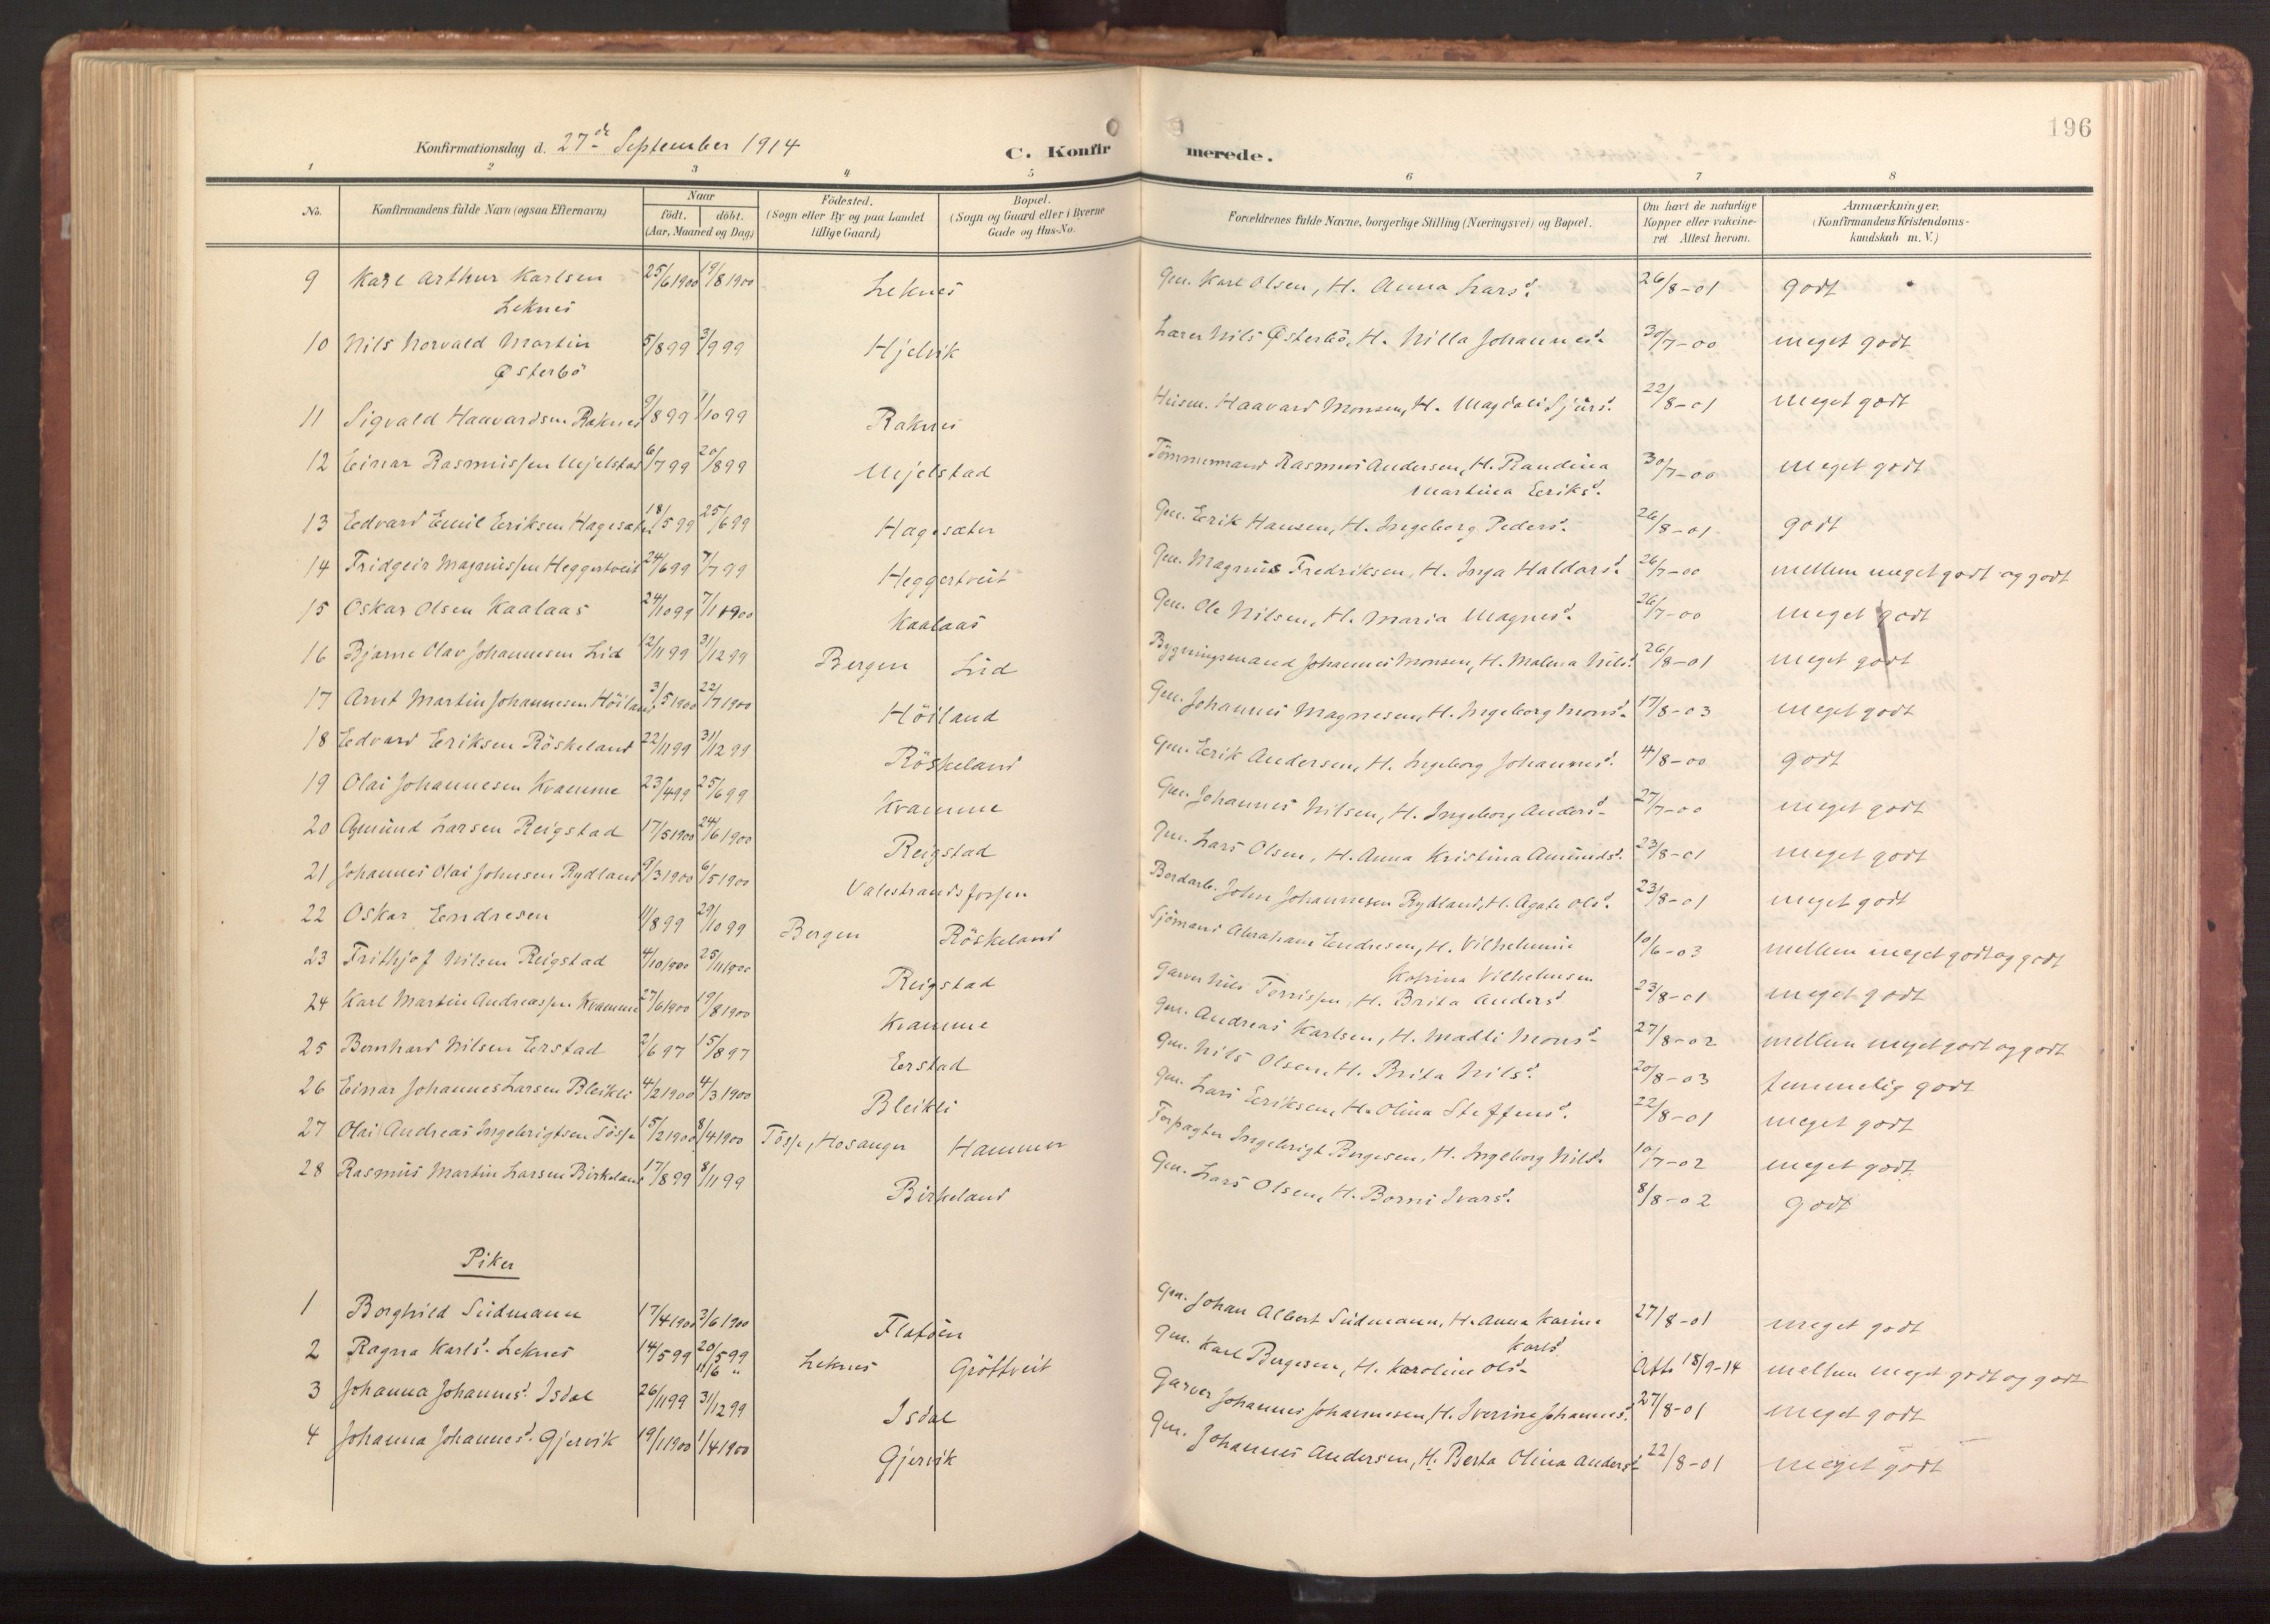 196
Konfirmationsdag d. 27de September 1914
C. Konfirmerede.
1 2 3 4 5 6 7 8
No.
Konfirmandens fulde Navn (ogsaa Efternavn)
Naar
födt. döbt.
(Aar, Maaned og Dag)
Födested.
(Sogn eller By og paa Landet
tillige Gaard)
Bopæl.
(Sogn og Gaard eller i Byerne
Gade og Hus-No.
Forældrenes fulde Navne, borgerlige Stilling (Næringsvei) og Bopæl.
Om havt de naturlige
Kopper eller vakcine-
ret Attest herom.
Anmærkninger.
(Konfirmandens Kristendoms-
kundskab m. V.)
9 Karl Arthur Karlsen 25/6 1900 19/8 1900 Leknes Gm. Karl Olsen, H. Anna Larsd. 26/8-01 godt
Leknes
10 Nils Norvald Martin 5/8 99 3/9 99 Hjelvik Lærer Nils Østerbö, H. Nilla Johannesd. 30/7-00 meget godt
Østerbö
11 Sigvald Haavardsen Raknes 9/8 99 1/10 99 Raknes Husm. Haavard Monsen, H. Magdali Sjursd. 22/8-01 meget godt
12 Einar Rasmussen Mjelstad 6/7 99 20/8 99 Mjelstad Tömmermand Rasmus Andersen, H. Randina 30/7-00 meget godt
Martina Eriksd.
13 Edvard Emil Eriksen Hagesæter 18/5 99 25/6 99 Hagesæter Gm. Erik Hansen, H. Ingeborg Pedersd. 26/8-01 godt
14 Fridgeir Magnussen Heggertveit 24/6 99 7/7 99 Heggertveit Gm. Magnus Fredriksen, H. Inga Haldorsd. 26/7-00 mellem meget godt og godt
15 Oskar Olsen Kaalaas 24/10 99 7/1 1900 Kaalaas Gm. Ole Nilsen, H. Maria Magnesd. 26/7-00 meget godt
16 Bjarne Olav Johannesen Lid 12/11 99 31/12 99 Bergen Lid Bygningsmand Johannes Monsen, H. Malena Nilsd. 26/8-01 meget godt
17 Arnt Martin Johannesen Höiland 3/5 1900 22/7 1900 Höiland Gm. Johannes Magnesen, H. Ingeborg Monsd. 17/8-03 meget godt
18 Edvard Eriksen Röskeland 22/11 99 31/12 99 Röskeland Gm. Erik Andersen, H. Ingeborg Johannesd. 4/8-00 godt
19 Olai Johannesen Kvamme 23/4 99 25/6 99 Kvamme Gm. Johannes Nilsen, H. Ingeborg Andersd. 27/7-00 meget godt
20 Amund Larsen Reigstad 17/5 1900 24/6 1900 Reigstad Gm. Lars Olsen, H. Anna Kristina Amundsd. 23/8-01 meget godt
21 Johannes Olai Johnsen Rydland 9/3 1900 6/5 1900 Valestrandsfossen Bordarb. John Johannesen Rydland, H. Agate Olsd. 23/8-01 meget godt
22 Oskar Endresen 11/8 99 29/10 99 Bergen Röskeland Sjömand Abraham Endresen, H. Vilhelmine 10/6-03 mellem meget godt og godt
Katrina Vilhelmsen
23 Frithjof Nilsen Reigstad 4/10 1900 25/11 1900 Reigstad Garver Nils Terrissen, H. Brita Andersd. 23/8-01 meget godt
24 Karl Martin Andreassen Kvamme 27/6 1900 19/8 1900 Kvamme Gm. Andreas Karlsen, H. Madli Monsd. 27/8-02 mellem meget godt og godt
25 Bernhard Nilsen Erstad 2/6 97 15/8 97 Erstad Gm. Nils Olsen, H. Brita Nilsd. 20/8-03 temmelig godt
26 Einar Johannes Larsen Bleikli 4/2 1900 4/3 1900 Bleikli Gm. Lars Eriksen, H. Olina Steffensd. 22/8-01 meget godt
27 Olai Andreas Ingebrigtsen Tösse 15/2 1900 8/4 1900 Tösse, Hosanger Hammer Forpagter Ingebrigt Börgesen, H. Ingeborg Nilsd. 10/7-02 meget godt
28 Rasmus Martin Larsen Birkeland 17/8 99 8/11 99 Birkeland Gm. Lars Olsen, H. Borni Ivarsd. 8/8-02 godt
Piker
1 Borghild Südmann 17/4 1900 3/6 1900 Flatöen Gm. Johan Albert Südmann, H. Anna Karina 27/8-01 meget godt
Karlsd.
2 Ragna Karlsd. Leknes 14/5 99 20/5 99 Leknes Gröttveit Gm. Karl Börgesen, H. Karoline Olsd. Att. 18/9-14 mellem meget godt og godt
11/6 "
3 Johanna Johannesd. Isdal 26/11 99 31/12 99 Isdal Garver Johannes Johannesen, H. Iverine Johannesd. 27/8-01 meget godt
4 Johanna Johannesd. Gjervik 19/1 1900 1/4 1900 Gjervik Gm. Johannes Andersen, H. Berta Olina Andersd. 22/8-01 meget godt